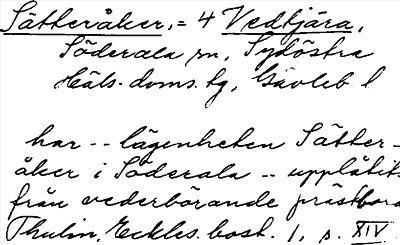 Sätteråker, = 4 Vedtjära,
Söderala sn, Sydöstra
Häls. doms. tg, Gävleb l
har - - lägenheten Sätter-
åker i Söderala - - upplåtits
från vederbörande prästbord
Thulin, Eckles. bost. 1, s. XIV